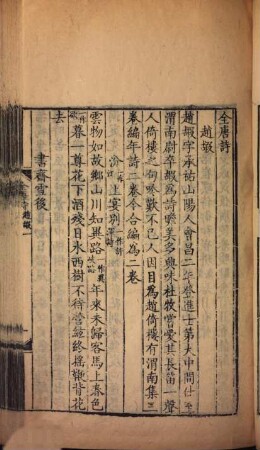 全唐詩
趙嘏
趙嘏字承祐山陽人會昌二年登進士第大中間仕至
渭南尉卒嘏爲詩贍美多興味杜牧嘗愛其長笛一聲
人倚樓之句吟歎不已人因目爲趙倚樓有渭南集三
卷編年詩二卷今合編爲二卷
汾上宴別
雲物如故鄉山川知異路年來未歸客馬上春色
暮一尊花下酒殘日水西樹不待管絃終搖鞭背花
去
書齋雪後
趙嘏一